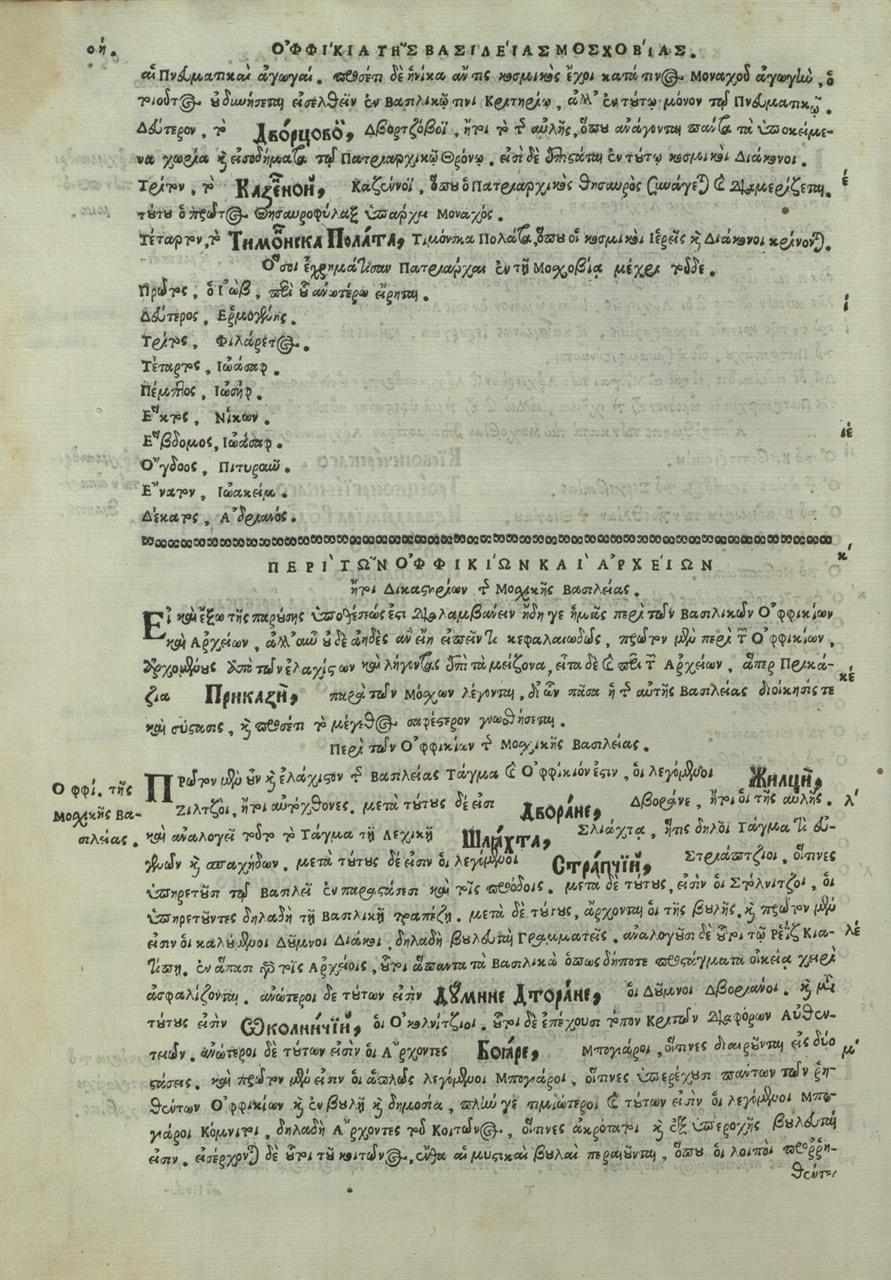 οή. ΟΦΦΙΚΙΑ ΤΗΣ ΒΑΣΙΛΕΙΑΣ ΜΟΣΧΟΒΙΑΣ.
αἱ Πνευματικαὶ ἀγωγαί. προσέτι δὲ ἡνίκα ἄν τις κοσμικὸς ἔχοι κατά τινος Μοναχοῦ ἀγωγὴν, ὁ
τοιοῦτος οὐ δυνήσεται εἰσελθεῖν ἐν Βασιλικῷ τινι Κριτηρίῳ, ἀλλ' ἐν τούτῳ μόνον τῷ Πνευματικῷ.
Δεύτερον, τὸ Дворцовой, Δβορτζόβοϊ, ἤτοι τὸ τῆς αὐλῆς, ὅπου ἀνάγονται πάντα τὰ ὑποκείμε-
να χωρία καὶ εἰσοδήματα τῷ Πατριαρχικῷ Θρόνῳ. εἰσὶ δὲ ἐπιστάται ἐν τούτῳ κοσμικοὶ Διάκονοι.
Τρίτον, τὸ Казенной, Καζεννόϊ, ὅπου ὁ Πατριαρχικὸς θησαυρὸς συνάγεται καὶ διαμερίζεται. έ
τούτου ὁ πρῶτος Θησαυροφύλαξ ὑπάρχει Μοναχός.
Τέταρτον, τὸ Тимонска Полата, Τιμόνσκα Πολάτα, ὅπου οἱ κοσμικοὶ Ἱερεῖς καὶ Διάκονοι κρίνονται.
Ὅσοι ἐχρημάτισαν Πατριάρχαι ἐν τῇ Μοσχοβίᾳ μέχρι τοῦδε.
Πρῶτος, ὁ Ἰὼβ, περὶ οὗ ἀνωτέρω εἴρηται.
Δεύτερος, Ἑρμογένης.
Τρίτος, Φιλάρετος.
Τέταρτος, Ἰωάσαφ.
Πέμπτος, Ἰωσήφ.
Ἕκτος, Νίκων.
Ἕβδομος, Ἰωάσαφ. ιέ
Ὄγδοος, Πιτυρίμ.
Ἔνατον, Ἰωακείμ.
Δέκατος, Ἀδριανός.
ΠΕΡΙ ΤΩΝ ΟΦΦΙΚΙΩΝ ΚΑΙ ΑΡΧΕΙΩΝ κ́
ἤτοι Δικαστηρίων τῆς Μοσχικῆς Βασιλείας.
Εἰ καὶ ἔξω τῆς παρούσης ὑποθέσεώς ἐστι διαλαμβάνειν ἤδη γε ἡμᾶς περὶ τῶν Βασιλικῶν Ὀφφικίων
καὶ Ἀρχείων, ἀλλ' οὖν οὐδὲ ἀηδὲς ἂν εἴη εἰπεῖν τι κεφαλαιωδῶς, πρῶτον μὲν περὶ τῶν Ὀφφικίων,
ἀρχομένους ἀπὸ τῶν ἐλαχίστων καὶ λήγοντας ἐπὶ τὰ μείζονα, εἶτα δὲ καὶ περὶ τῶν Ἀρχείων, ἅπερ Πρικά- κέ
ζια Приказы, παρὰ τῶν Μόσχων λέγονται, δι' ὧν πᾶσα ἡ τῆς αὐτῆς Βασιλείας διοίκησίς τε
καὶ σύστασις, καὶ προσέτι τὸ μέγεθος σαφέστερον γνωσθήσεται.
Περὶ τῶν Ὀφφικίων τῆς Μοσχικῆς Βασιλείας.
Ὀφφί. τῆς Μοσχικῆς Βα-σιλείας.
Πρῶτον μὲν οὖν καὶ ἐλάχιστον τῆς Βασιλείας Τάγμα καὶ Ὀφφίκιόν ἐστιν, οἱ λεγόμενοι Жилцы,
Ζιλτζοὶ, ἤτοι αὐτόχθονες. μετὰ τούτους δέ εἰσι Дворяне, Δβοράνε, ἤτοι οἱ τῆς αὐλῆς. λ́
καὶ ἀναλογεῖ τοῦτο τὸ Τάγμα τῇ Λεχικῇ Шляхта, Σλιάχτα, ἥτις δηλοῖ Τάγμα τι εὐ-
γενῶν καὶ σπαχήδων. μετὰ τούτους δὲ εἰσὶν οἱ λεγόμενοι Страпчіи, Στράπτζιοι, οἵτινες
ὑπηρετοῦσι τῷ Βασιλεῖ ἐν παρατάσεσι καὶ τοῖς προόδοις. μετὰ δὲ τούτους, εἰσὶν οἱ Στόλνιτζοι, οἱ
ὑπηρετοῦντες δηλαδὴ τῇ Βασιλικῇ τραπέζῃ. μετὰ δὲ τούτους, ἄρχονται οἱ τῆς βουλῆς. καὶ πρῶτον μὲν
εἰσὶν οἱ καλούμενοι Δούμνοι Διάκοι, δηλαδὴ βουλευταὶ Γραμματεῖς. ἀναλογοῦσι δὲ οὗτοι τῷ Ρεΐζ Κια- λέ
τίπῃ. ἐν ἅπασι γὰρ τοῖς Ἀρχείοις, οὗτοι ἅπαντα τὰ Βασιλικὰ ὁπωσδήποτε προστάγματα οἰκείᾳ χειρὶ
ἀσφαλίζονται. ἀνώτεροι δὲ τούτων εἰσὶν Думніе Дворяне, οἱ Δούμνοι Δβοριάνοι. καὶ μετὰ
τούτους εἰσὶν Ѡколничіи, οἱ Ὀκολνίτζιοι. οὗτοι δὲ ἐπέχουσι τόπον Κριτῶν διαφόρων Αὐθεν-
τειῶν. ἀνώτεροι δὲ τούτων εἰσὶν οἱ Ἄρχοντες Бояре, Μπογιάροι, οἵτινες διαιροῦνται εἰς δύο μ́
στάσεις. καὶ πρῶτον μὲν εἰσὶν οἱ ἁπλῶς λεγόμενοι Μπογιάροι, οἵτινες ὑπερέχουσι πάντων τῶν ῥη-
θέντων Ὀφφικίων καὶ ἐν βουλῇ καὶ δημοσίᾳ, πλὴν γε τιμιώτεροι καὶ τούτων εἰσὶν οἱ λεγόμενοι Μπο-
γιάροι Κόμνιτοι, δηλαδὴ Ἄρχοντες τοῦ Κοιτῶνος, οἵτινες ἀκρότατοι καὶ ἐξ ὑπεροχῆς βουλευταί
εἰσιν. εἰσέρχονται δὲ οὗτοι τοῦ κοιτῶνος, ἔνθα αἱ μυστικαὶ βουλαὶ περαίνονται, ὅπου οἱ λοιποὶ προῤῥη-
θέντες